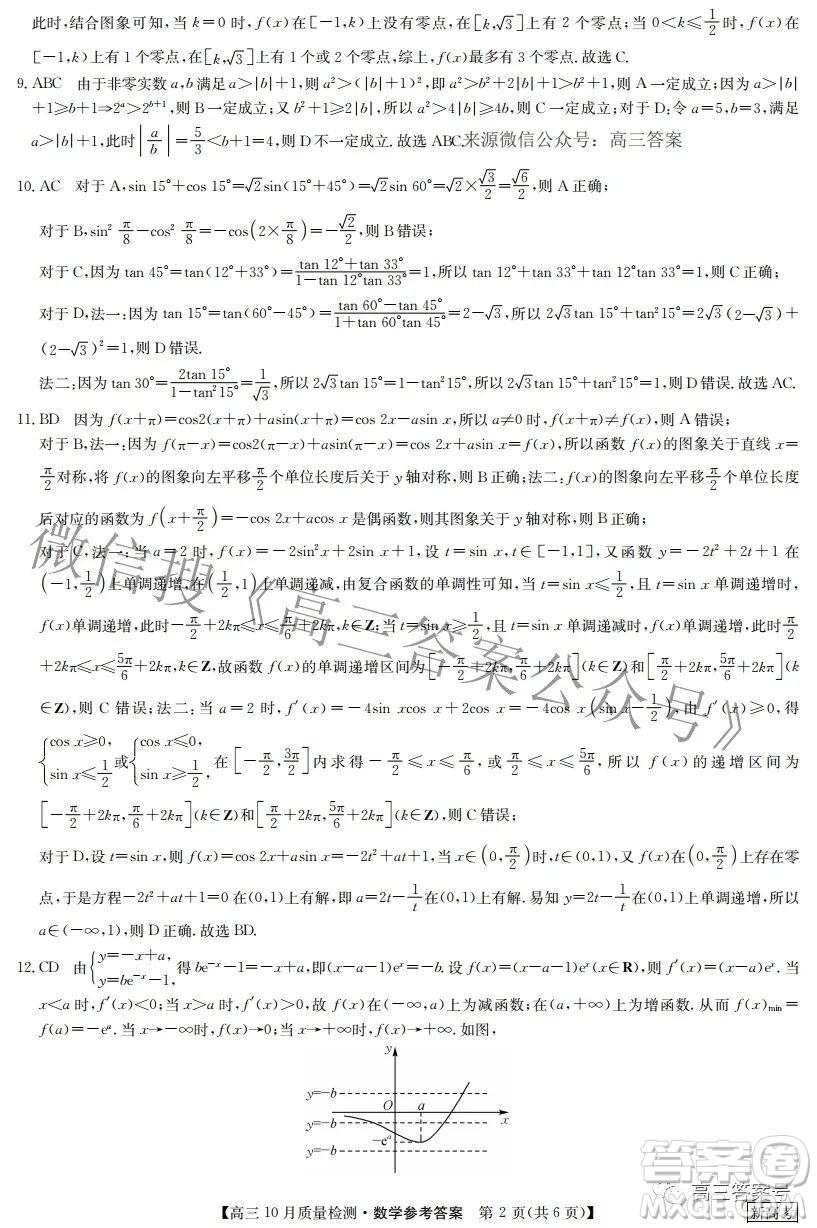 此时,结合图象可知,当 k=0 时,f(x)在[-1,k)上没有零点,在[k,√3]上有 2 个零点;当 0<k≤1/2 时,f(x)在
[-1,k)上有 1 个零点,在[k,√3]上有 1 个或 2 个零点,综上,f(x)最多有 3 个零点.故选 C.
9. ABC 由于非零实数 a,b 满足 a>|b|+1,则 a²>(|b|+1)²,即 a²>b²+2|b|+1>b²+1,则 A 一定成立;因为 a>|b|
+1≥b+1⇒2ᵃ>2ᵇ⁺¹,则 B 一定成立;又 b²+1≥2|b|,所以 a²>4|b|≥4b,则 C 一定成立;对于 D:令 a=5,b=3,满足
a>|b|+1,此时|a/b|=5/3<b+1=4,则 D 不一定成立.故选 ABC.来源微信公众号：高三答案
10. AC 对于 A,sin 15°+cos 15°=√2sin(15°+45°)=√2sin 60°=√2×√3/2=√6/2,则 A 正确;
对于 B,sin² π/8-cos² π/8=-cos(2×π/8)=-√2/2,则 B 错误;
对于 C,因为 tan 45°=tan(12°+33°)=(tan 12°+tan 33°)/(1-tan 12°tan 33°)=1,所以 tan 12°+tan 33°+tan 12°tan 33°=1,则 C 正确;
对于 D,法一:因为 tan 15°=tan(60°-45°)=(tan 60°-tan 45°)/(1+tan 60°tan 45°)=2-√3,所以 2√3 tan 15°+tan²15°=2√3(2-√3)+
(2-√3)²=1,则 D 错误.
法二:因为 tan 30°=2tan 15°/(1-tan²15°)=1/√3,所以 2√3 tan 15°=1-tan²15°,则 2√3 tan 15°+tan²15°=1.故选 AC.
11. BD 因为 f(x+π)=cos2(x+π)+asin(x+π)=cos 2x-asin x,所以 a≠0 时,f(x+π)≠f(x),则 A 错误;
对于 B,法一:因为 f(π-x)=cos2(π-x)+asin(π-x)=cos 2x+asin x=f(x),所以函数 f(x)的图象关于直线 x=
π/2对称,将 f(x)的图象向左平移π/2个单位长度后关于 y 轴对称,则 B 正确;法二:f(x)的图象向左平移π/2个单位长度
后对应的函数为 f(x+π/2)=-cos 2x+acos x 是偶函数,则其图象关于 y 轴对称,则 B 正确;
对于 C,法一:当 a=2 时,f(x)=-2sin²x+2sin x+1,设 t=sin x,t∈[-1,1],又函数 y=-2t²+2t+1 在
(-1,1/2)上单调递增,在(1/2,1)上单调递减,由复合函数的单调性可知,当 t=sin x≤1/2,且 t=sin x 单调递增时,
f(x)单调递增,此时-π/2+2kπ≤x≤π/6+2kπ,k∈Z;当 t=sin x≥1/2,且 t=sin x 单调递减时,f(x)单调递增,此时π/2
+2kπ≤x≤5π/6+2kπ,k∈Z,故函数 f(x)的单调递增区间为[-π/2+2kπ,π/6+2kπ](k∈Z)和[π/2+2kπ,5π/6+2kπ](k
∈Z),则 C 错误;法二:当 a=2 时,f′(x)=-4sin xcos x+2cos x=-4cos x(sin x-1/2),由 f′(x)≥0,得
{cos x≥0, sin x≤1/2 或{cos x≤0, sin x≥1/2, 在[-π/2,3π/2]内求得-π/2≤x≤π/6,或π/2≤x≤5π/6,所以 f(x)的递增区间为
[-π/2+2kπ,π/6+2kπ](k∈Z)和[π/2+2kπ,5π/6+2kπ](k∈Z),则 C 错误;
对于 D,设 t=sin x,则 f(x)=cos 2x+asin x=-2t²+at+1,当 x∈(0,π/2)时,t∈(0,1),又 f(x)在(0,π/2)上存在零
点,于是方程-2t²+at+1=0 在(0,1)上有解,即 a=2t-1/t在(0,1)上有解.易知 y=2t-1/t在(0,1)上单调递增,所以
a∈(-∞,1),则 D 正确.故选 BD.
12. CD 由{y=-x+a, y=be⁻ˣ-1, 得 be⁻ˣ-1=-x+a,即(x-a-1)eˣ=-b.设 f(x)=(x-a-1)eˣ(x∈R),则 f′(x)=(x-a)eˣ.当
x<a 时,f′(x)<0;当 x>a 时,f′(x)>0,故 f(x)在(-∞,a)上为减函数;在(a,+∞)上为增函数.从而 f(x)min=
f(a)=-eᵃ.当 x→-∞时,f(x)→0;当 x→+∞时,f(x)→+∞.如图,
y
y=-b
O a x
y=-b
-eᵃ
y=-b
微信搜《高三答案公众号》
答案圈
高三答案号
MXQE.COM
【高三 10 月质量检测·数学参考答案 第 2 页(共 6 页)】
新高考